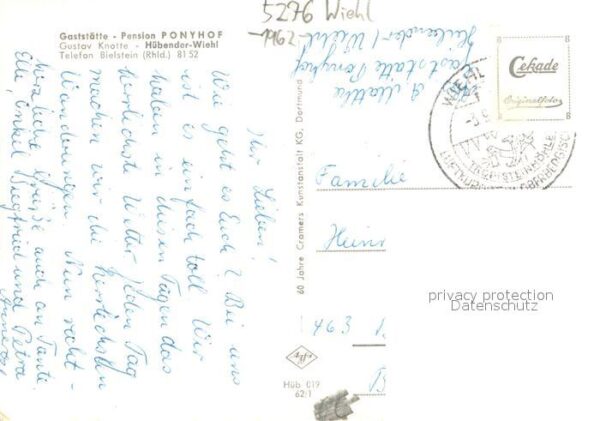 Gaststätte - Pension PONYHOF
Gustav Knotte - Hübender-Wiehl
Telefon Bielstein (Rhld.) 81 52
5276 Wiehl
-1962-
Ihr Lieben!
Wie geht es Euch? Bei uns
ist es einfach toll. Wir
haben in diesen Tagen das
herrlichste Wetter. Jeden Tag
machen wir die herrlichsten
Wanderungen. Nun recht-
herzliche Grüße auch an Tante
Elli, Onkel Siegfried und Petra
60 Jahre Cramers Kunstanstalt KG, Dortmund
Gaststätte Ponyhof
Hübender/Wiehl
WIEHL
Cekade
Originalfoto
Familie
Heinr
463
Agfa
Hüb 019
62/1
privacy protection
Datenschutz